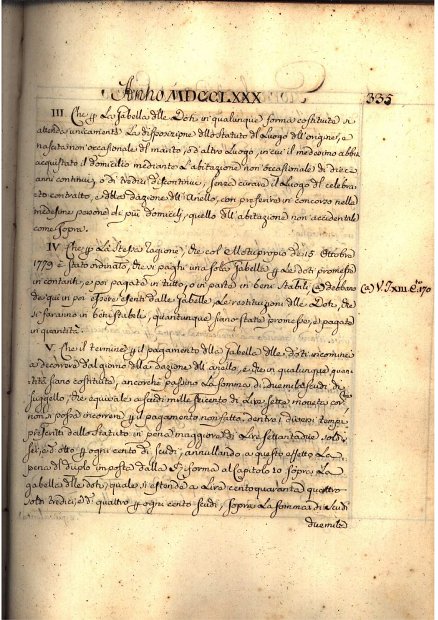 Anno MDCCLXXX 335
III. Che p. La Gabella delle Doti in qualunque forma costituite si
attenda unicamente La disposizione dello Statuto del Luogo dell'origine, e
nascita non occasionale del marito, o d'altro Luogo, in cui il medesimo abbia
acquistato il domicilio mediante L'abitazione non occasionale di dieci
anni continui, o di tredici discontinui, senza curare il Luogo del celebra-
to contratto, e della dazione dell'Anello, con preferire in concorso nelle
medesime persone di più domicilj, quello dell'abitazione non accidentale
come sopra.
IV Che p. La stessa ragione, che col Motuproprio de 15 Ottobre
1779 è stato ordinato, che si paghi una sola Gabella p. Le doti promesse
in contanti, e poi pagate in tutto, o in parte in beni stabili, (a) debbano
da qui in poi essere esenti dalle Gabelle, Le restituzioni delle Doti, che
si faranno in beni stabili, quantunque siano state promesse, e pagate
in quantità.
(a) V. T. XIII. C. 170
V. Che il termine p. il pagamento della Gabella delle doti incominci
a decorrere dal giorno della dazione dell'anello, e che in qualunque quan-
tità siano costituite, ancorchè passino La somma di duemila scudi, di
suggello, che equivale a scudi mille seicento di Lire sette moneta cor.
non si possa incorrere p. il pagamento non fatto, dentro i diversi tempi
prescritti dallo Statuto in pena maggiore di Lire settantadue soldi
sei, ed otto p. ogni cento di scudi, annullando a questo effetto La
pena del duplo imposta dalla Riforma al Capitolo 10 sopra La
gabella delle doti, quale si estende a Lire cento quaranta quattro
soldi tredici, e di quattro p. ogni cento scudi, sopra La somma di scudi
duemila